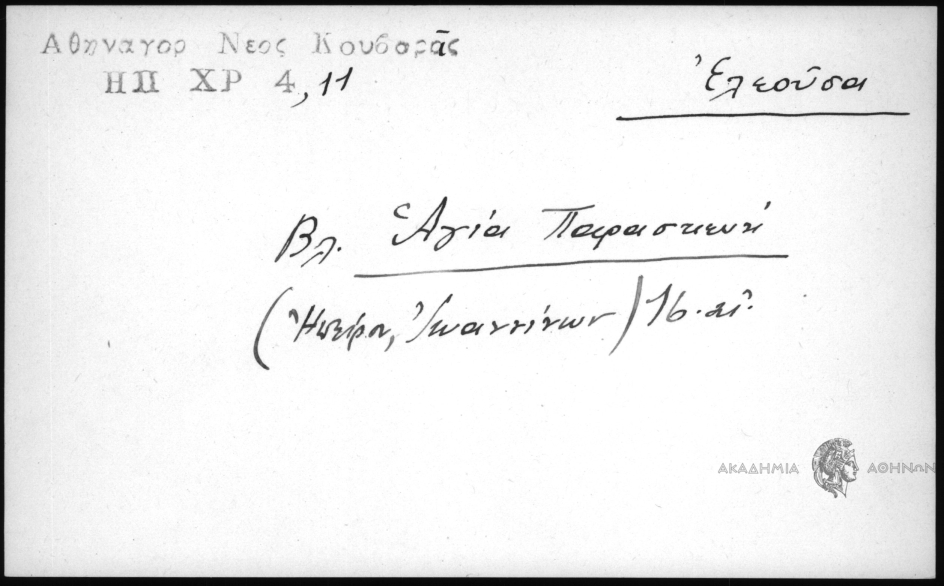 Αθηναγορ Νεος Κουβαρᾶς
ΗΠ ΧΡ 4, 11
Ἐλεοῦσα
Βλ. Ἁγία Παρασκευή
(Ἠπείρου, Ἰωαννίνων) 16. αἰ.
ΑΚΑΔΗΜΙΑ ΑΘΗΝΩΝ